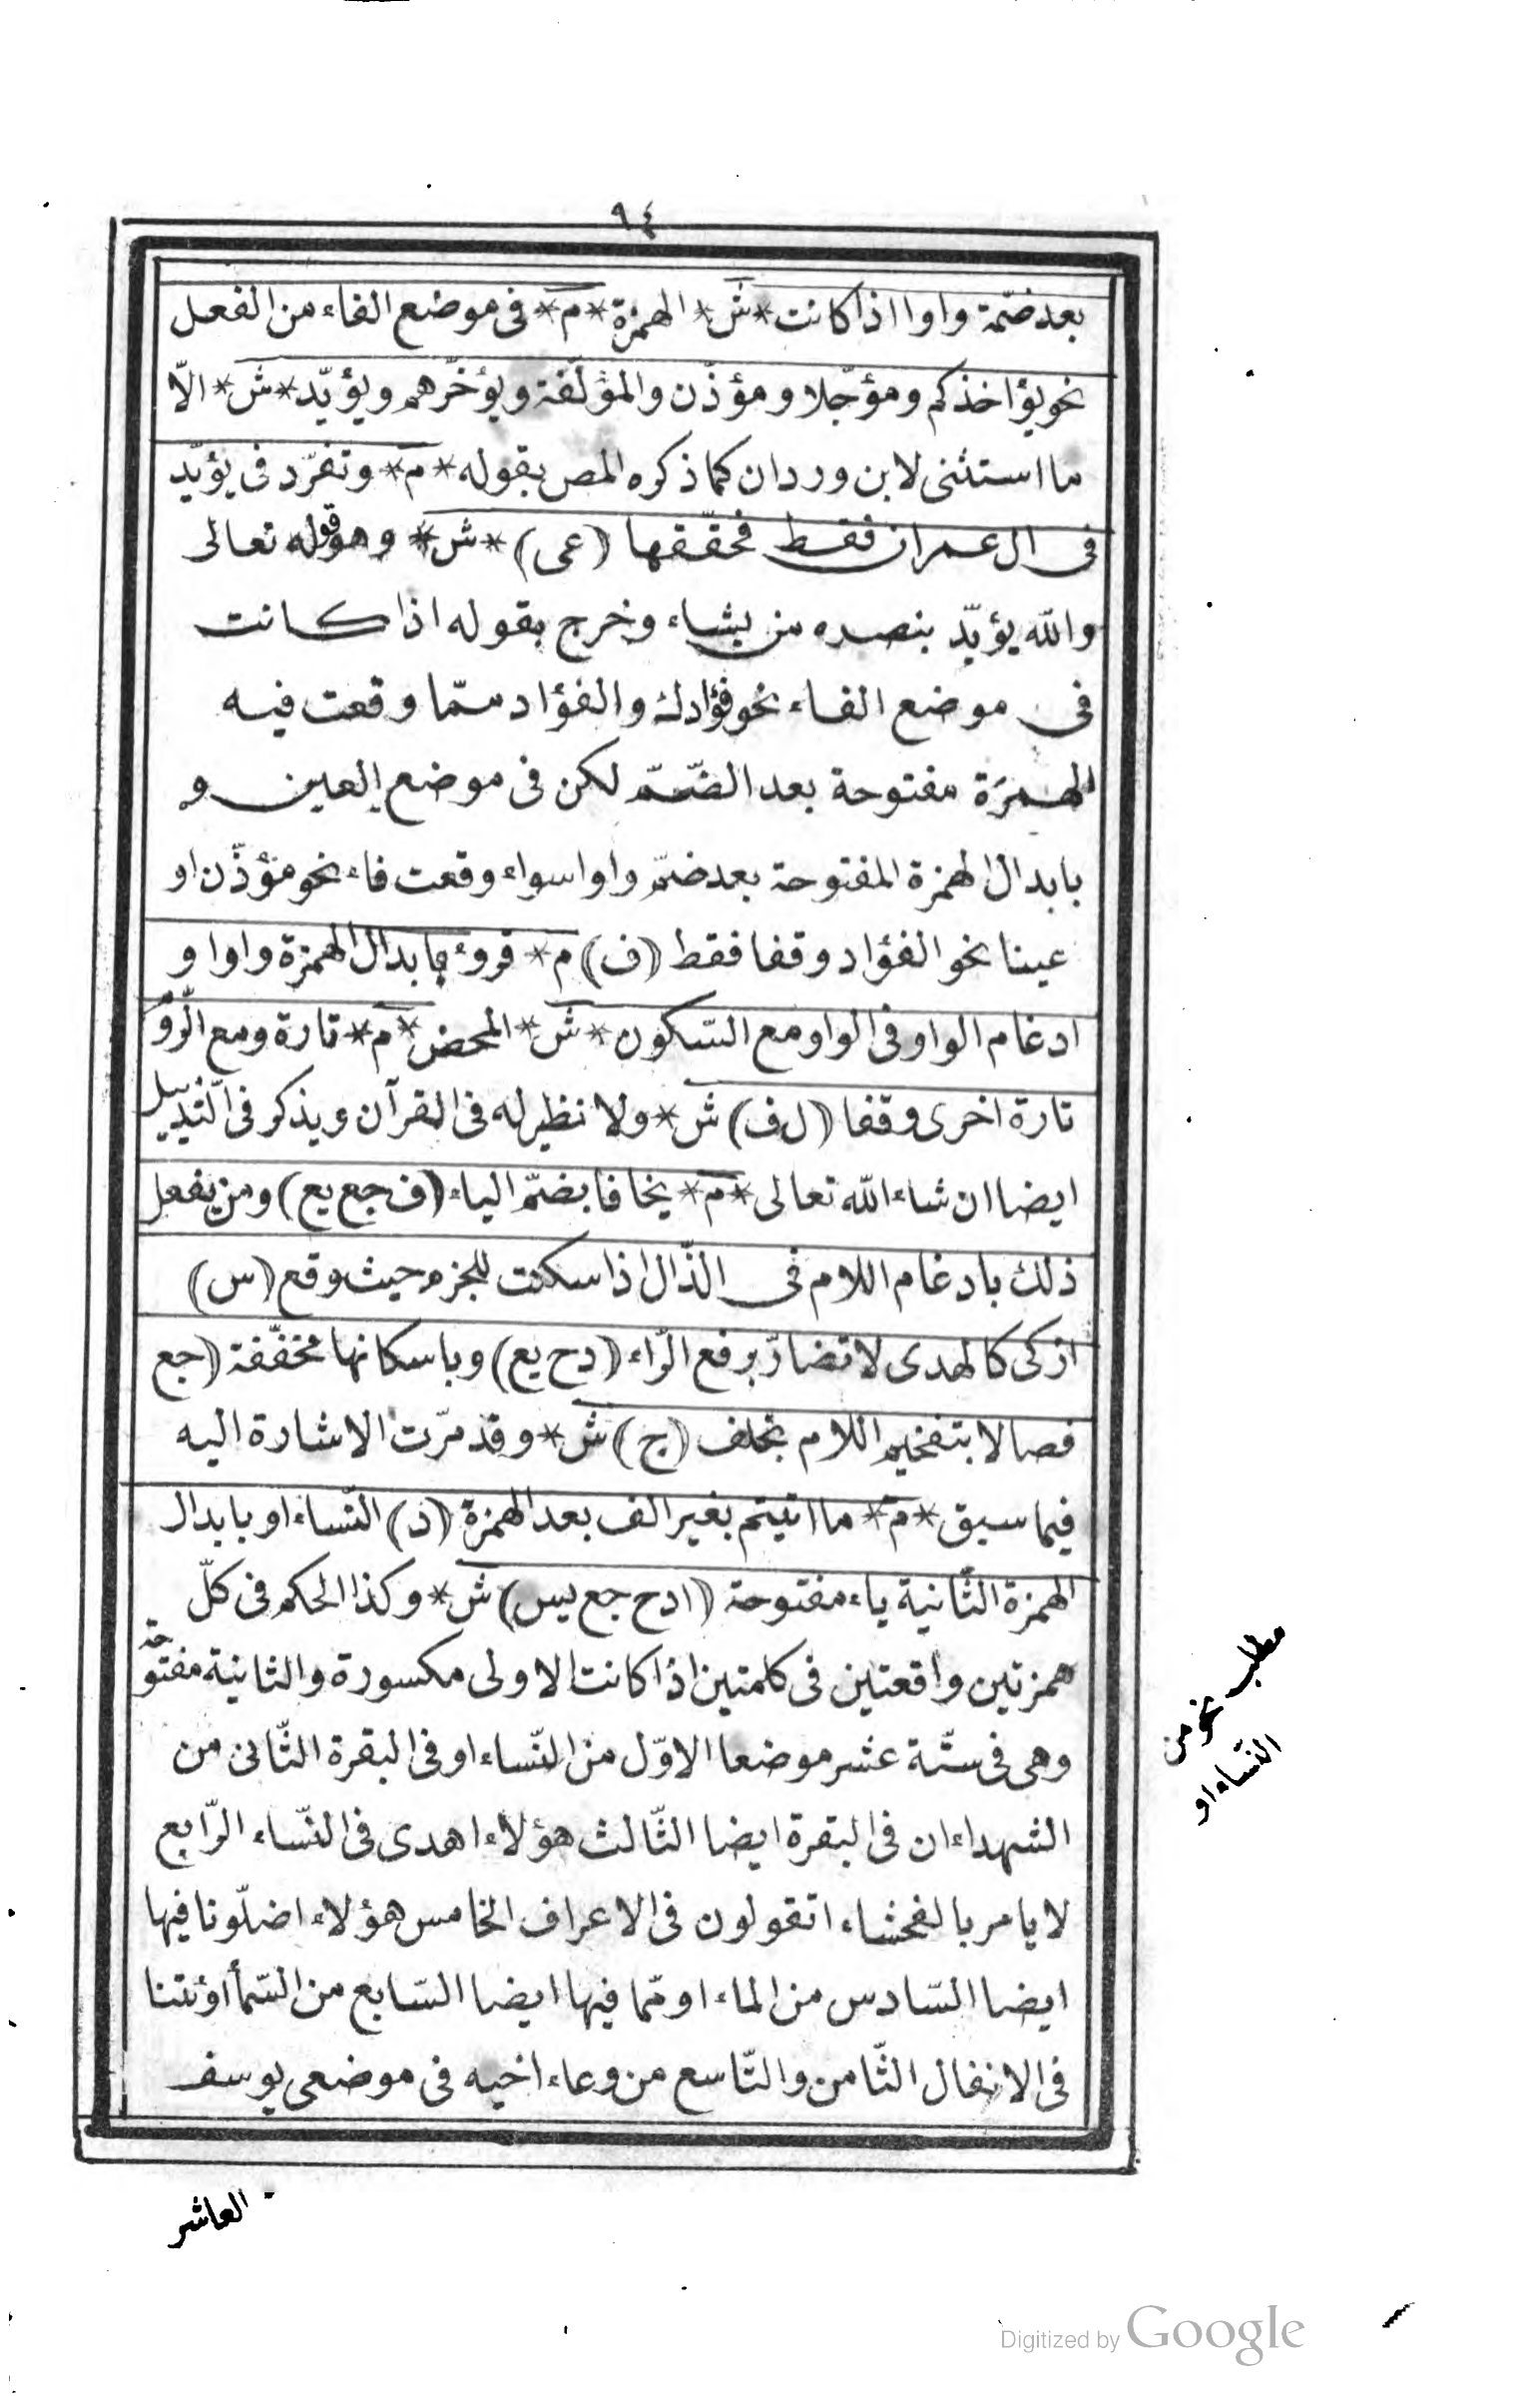 ٩٤
بعد ضمّة واوا اذا كانت *ش* الهمزة *م* فى موضع الفاء من الفعل
نحو يؤاخذكم ومؤجّلا ومؤذّن والمؤلّفة ويؤخّرهم ويؤيّد *ش* الّا
ما استثنى لابن وردان كما ذكره المص بقوله *م* وتفرّد فى يؤيّد
فى ال عمران فقط فحقّقها (عى) *ش* وهو قوله تعالى
والله يؤيّد بنصره من يشاء وخرج بقوله اذا كانت
فى موضع الفاء نحو فؤادك والفؤاد ممّا وقعت فيه
الهمزة مفتوحة بعد الضّمّ لكن فى موضع العين و
بابدال الهمزة المفتوحة بعد ضمّ واوا سواء وقعت فاء نحو مؤذّن او
عينا نحو الفؤاد وقفا فقط (ف) م* قروء بابدال الهمزة واوا و
ادغام الواو فى الواو مع السّكون *ش* المحض *م* تارة ومع الرّوم
تارة اخرى وقفا (ل ف) ش* ولا نظير له فى القرآن ويذكر فى التّذييل
ايضا ان شاء الله تعالى *م* يخافا بضمّ الياء (ف جع يع) ومن يفعل
ذلك بادغام اللام فى الذّال اذا سكنت للجزم حيث وقع (س)
ازكى كالهدى لا تضارّ برفع الرّاء (دح يع) وباسكانها مخفّفة (جع
فصالا بتفخيم اللام بخلف (ج) ش* وقد مرّت الاشارة اليه
فيما سبق *م* ما اتيتم بغير الف بعد الهمزة (د) النّساء او بابدال
الهمزة الثّانية ياء مفتوحة (ادح جع يس) ش* وكذا الحكم فى كلّ
همزتين واقعتين فى كلمتين اذا كانت الاولى مكسورة والثانية مفتوحة
وهى فى ستّة عشر موضعا الاوّل من النّساء او فى البقرة الثّانى من
الشهداء ان فى البقرة ايضا الثّالث هؤلاء اهدى فى النّساء الرّابع
لا يامر بالفحشاء اتقولون فى الاعراف الخامس هؤلاء اضلّونا فيها
ايضا السّادس من الماء او ممّا فيها ايضا السّابع من السّمأ او ئتنا
فى الانفال الثّامن والتّاسع من وعاء اخيه فى موضعى يوسف
مطلب نحو من
النّساء او
العاشر
Digitized by Google